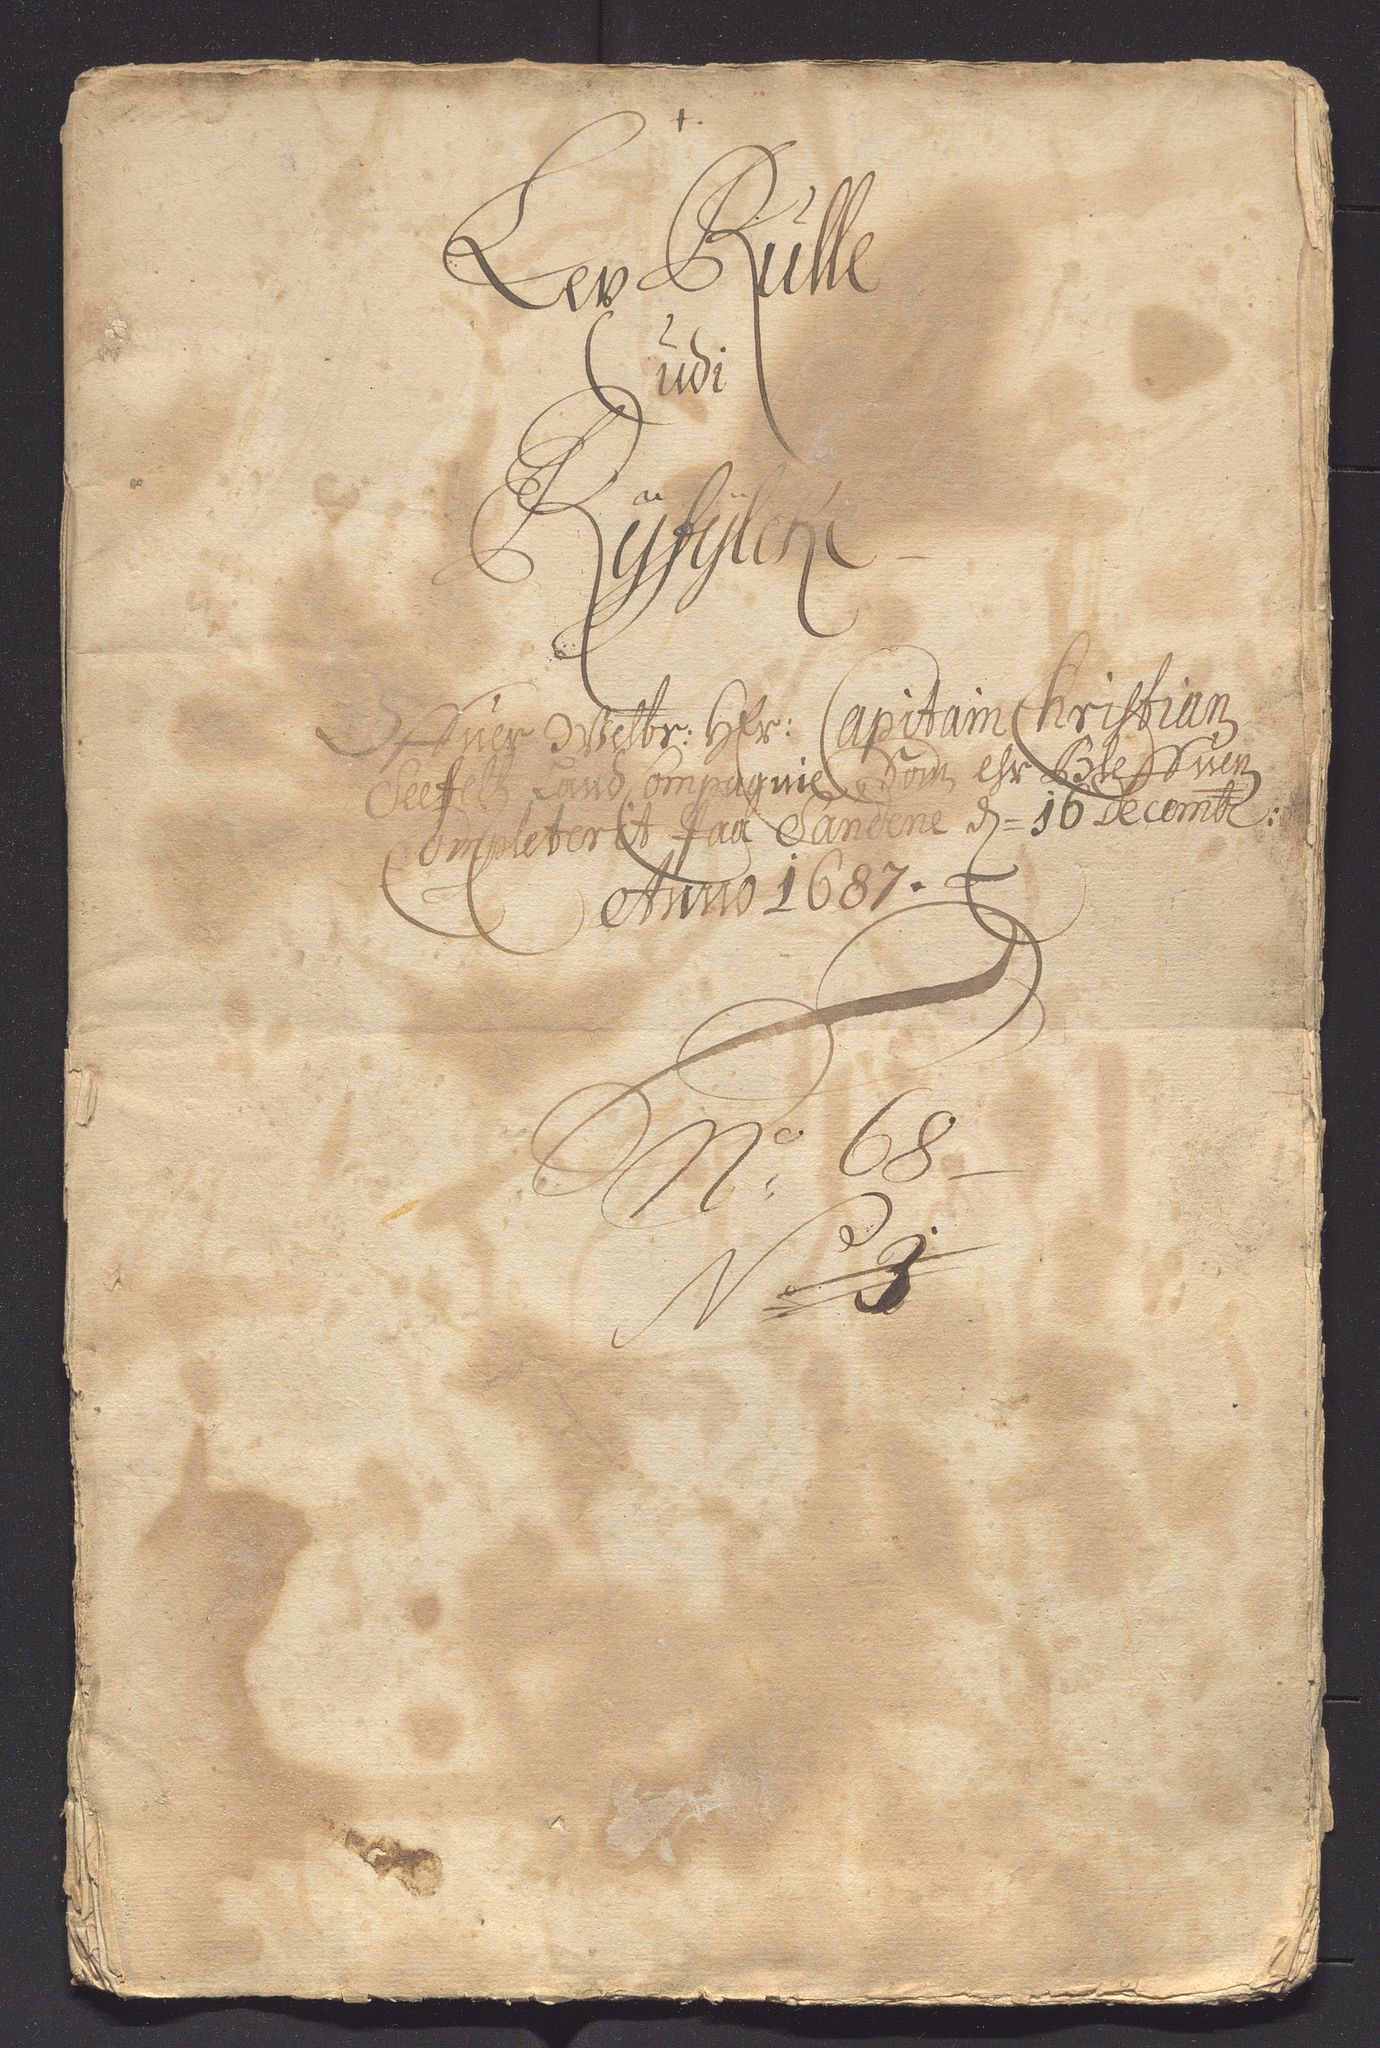 +.
Lev Rulle
udi
Rÿfÿlcke
Offuer Welbr: Hr: Capitain Christian
Seefelt Land Compagnie, Som ehr bleffuen
Completerit paa Sandene d= 16 decembr:
Anno 1687.
No: 68
No 3